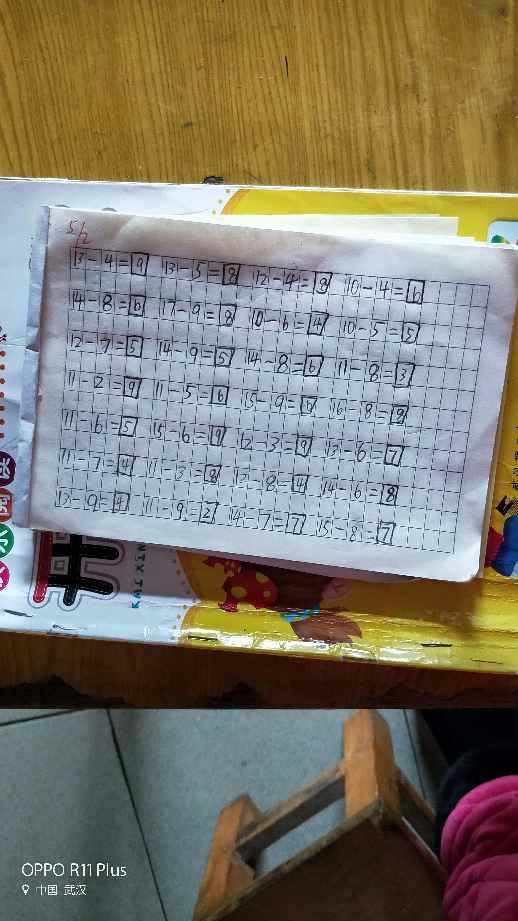 5/2
13-4=9 13-5=8 12-4=8 10-4=6
14-8=6 17-9=8 10-6=4 10-5=5
12-7=5 14-9=5 14-8=6 11-8=3
11-2=9 11-5=6 15-9=6 16-8=8
11-6=5 15-6=9 12-3=9 13-6=7
11-7=4 11-3=8 12-8=4 14-6=8
13-9=4 11-9=2 14-7=7 15-8=7
OPPO R11 Plus
中国 武汉